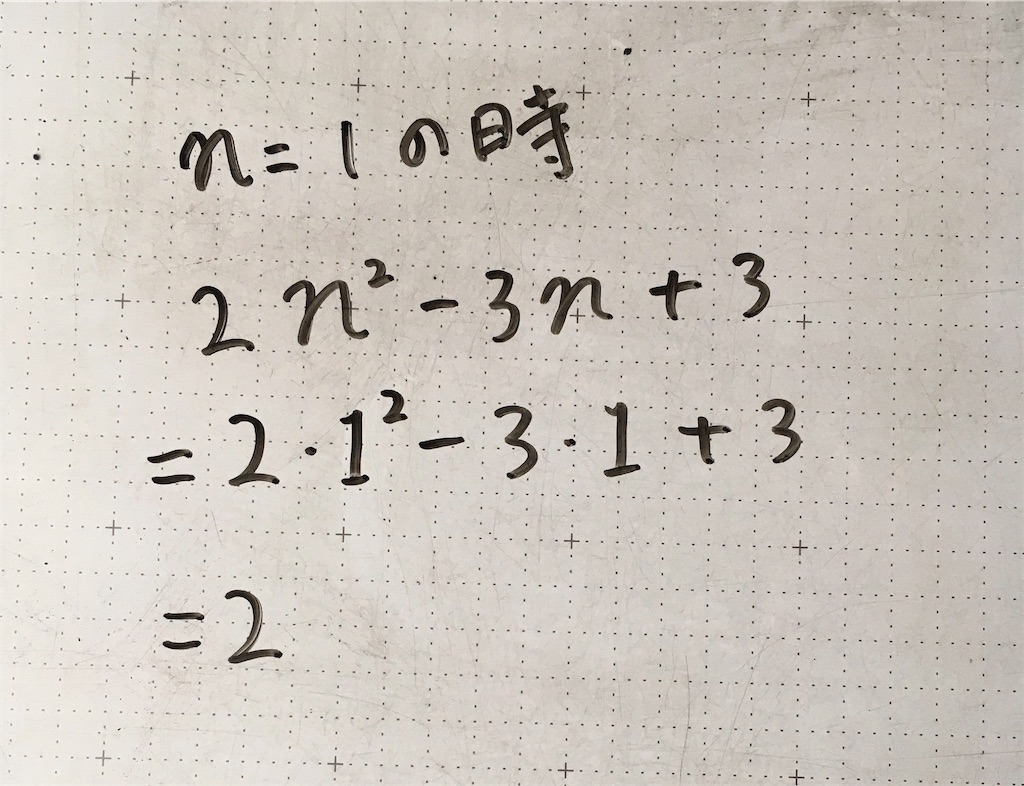 n=1の時
2n²-3n+3
=2·1²-3·1+3
=2